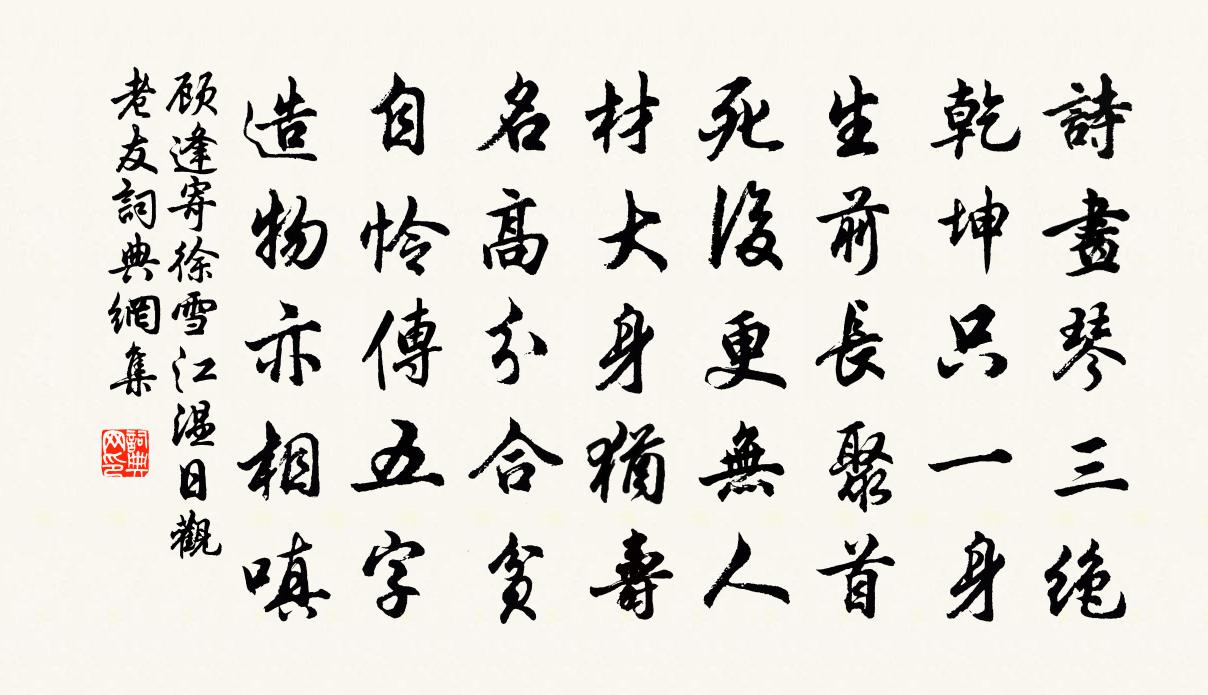 詩畫琴三绝
乾坤只一身
生前長聚首
死後更無人
材大身猶壽
名高分合貧
自怜傳五字
造物亦相嗔
顾逢寄徐雪江温日觀
老友詞典網集
詞典
网印